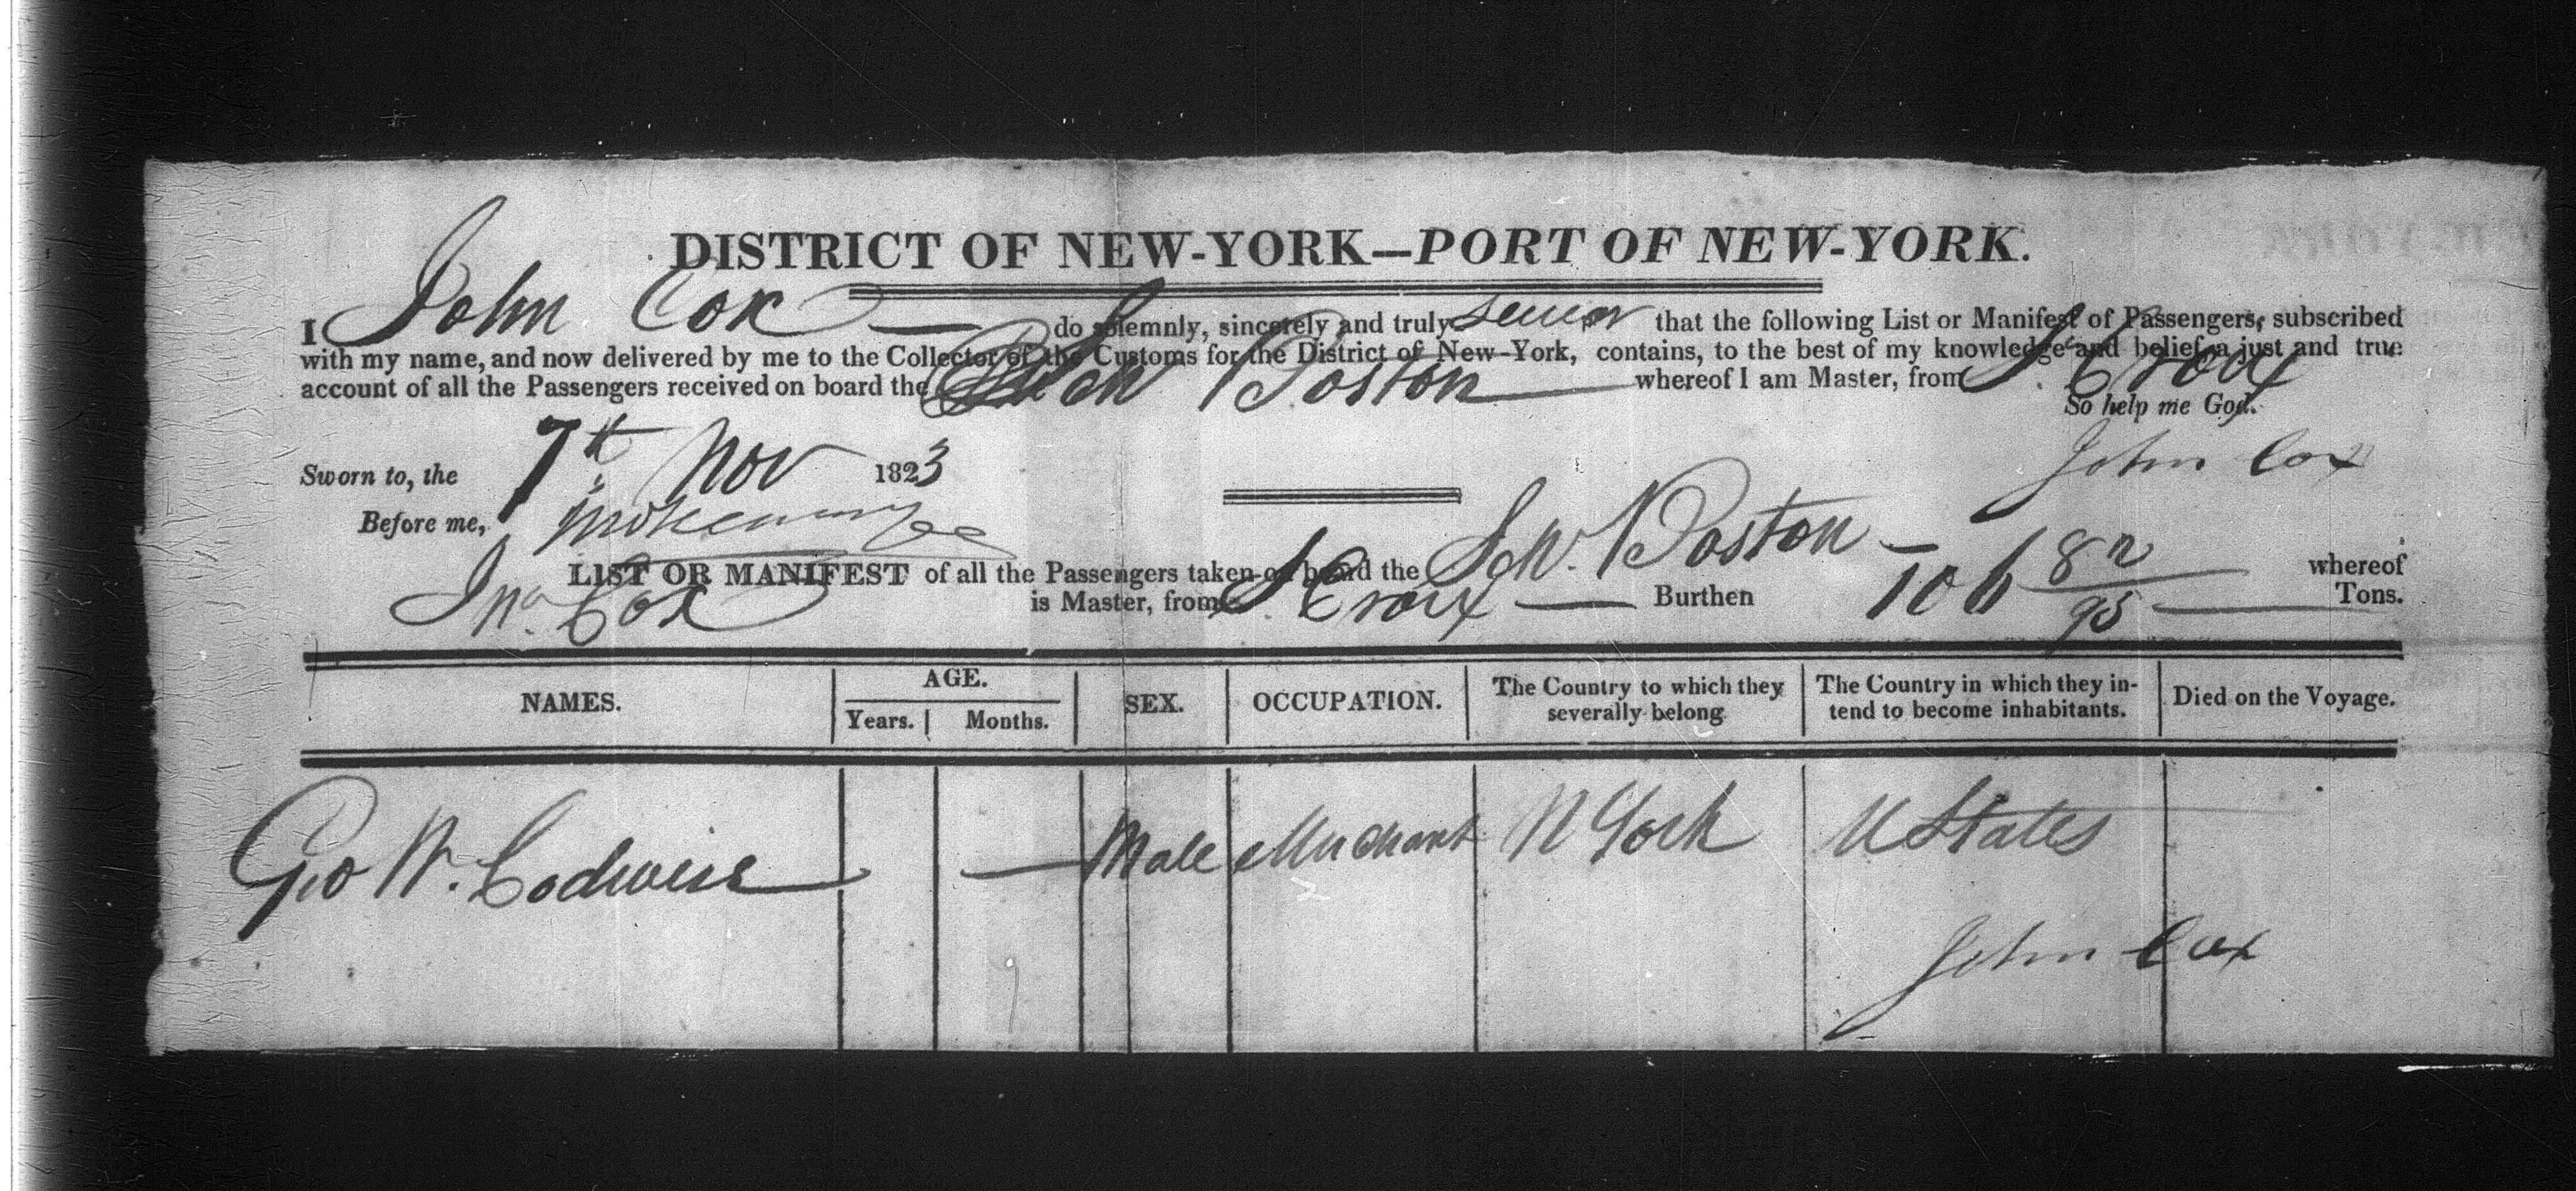 DISTRICT OF NEW-YORK—PORT OF NEW-YORK.
I John Cox do solemnly, sincerely and truly swear that the following List or Manifest of Passengers, subscribed
with my name, and now delivered by me to the Collector of the Customs for the District of New-York, contains, to the best of my knowledge and belief, a just and true
account of all the Passengers received on board the Sch Boston whereof I am Master, from St. Croix
So help me God.
John Cox
Sworn to, the 7th Nov 1823
Before me,
LIST OR MANIFEST of all the Passengers taken on board the Sch. Boston whereof
Jno Cox is Master, from St Croix Burthen 106 82/95 Tons.
NAMES. AGE. Years. Months. SEX. OCCUPATION. The Country to which they severally belong The Country in which they intend to become inhabitants. Died on the Voyage.
Geo W. Codwise Male Merchant N York U States
John Cox